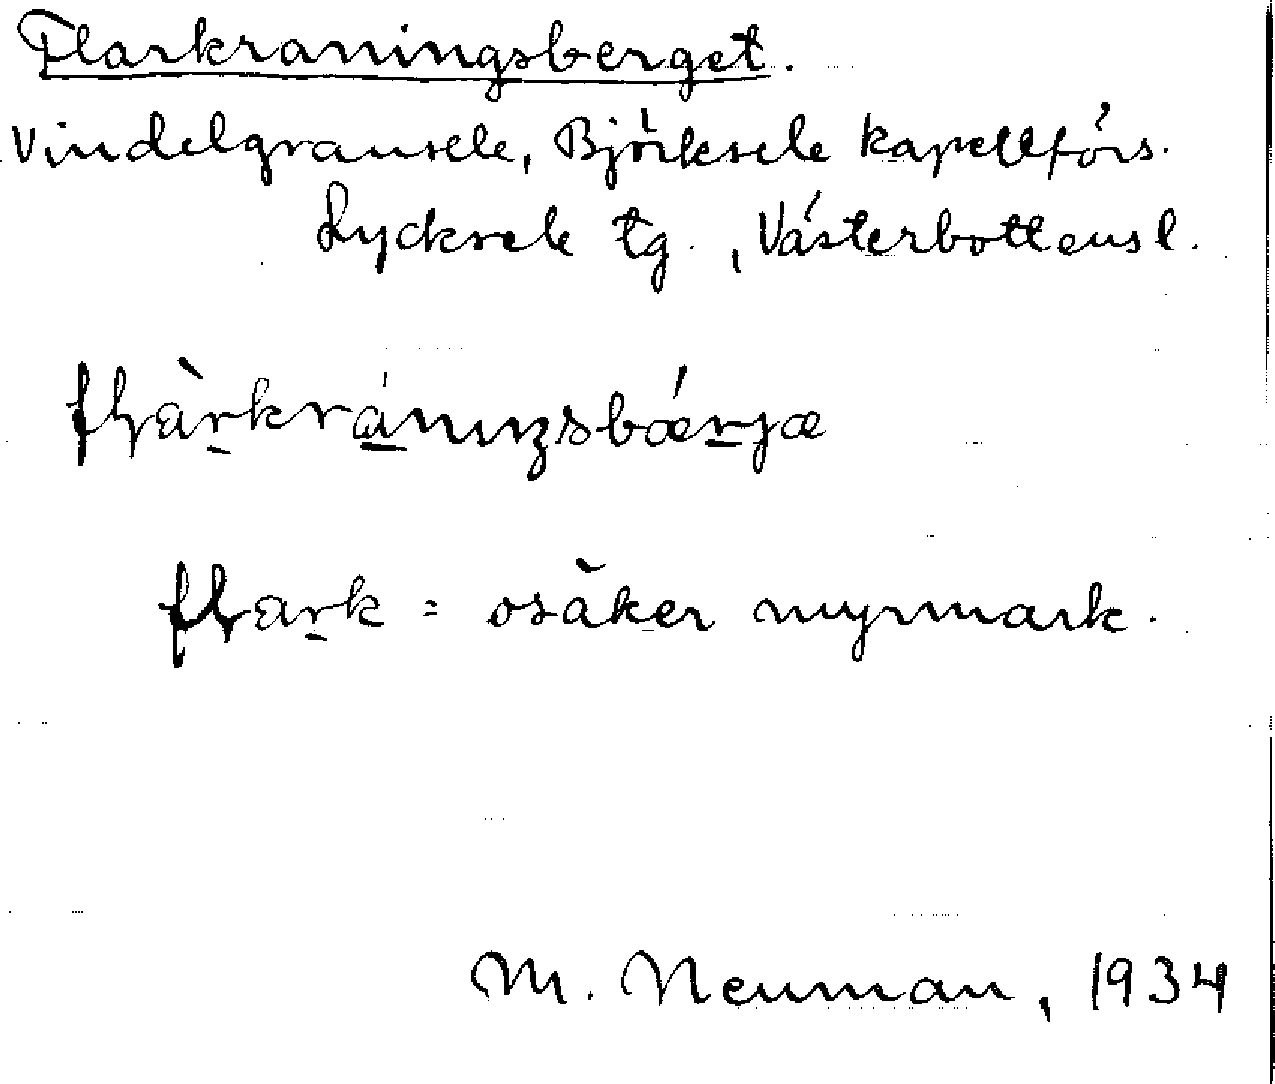 Flarkraningsberget.
Vindelgransele, Björksele kapellförs.
Lycksele tg., Västerbottensl.
flark = osäker myrmark.
M. Neuman, 1934